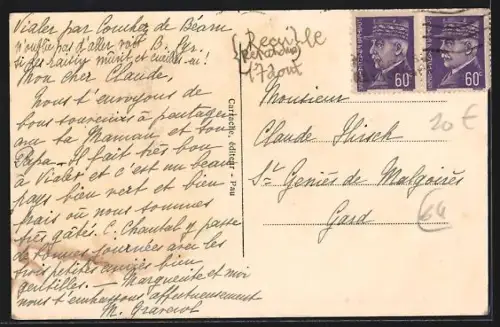 Vialer par Conchez de Béarn
n'oublie pas d'aller voir B. Gr.
si les raisins mûrit et cueille-
Mon cher Claude,
Nous t'envoyons de
bons souvenirs à partager
avec ta Maman et ton
Papa - Il fait très bon
à Vialer et c'est un beau
pays bien vert et bien
frais où nous sommes
très gâtés. C. Chantal y passe
de bonnes journées avec les
trois petites amies bien
gentilles. - Marguerite et moi
nous t'embrassons affectueusement
M.
Cartoche, éditeur - Pau
Reçu le
17 août
60c
60c
Monsieur
Claude
St Geniès de Malgoirès
Gard
20 €
64